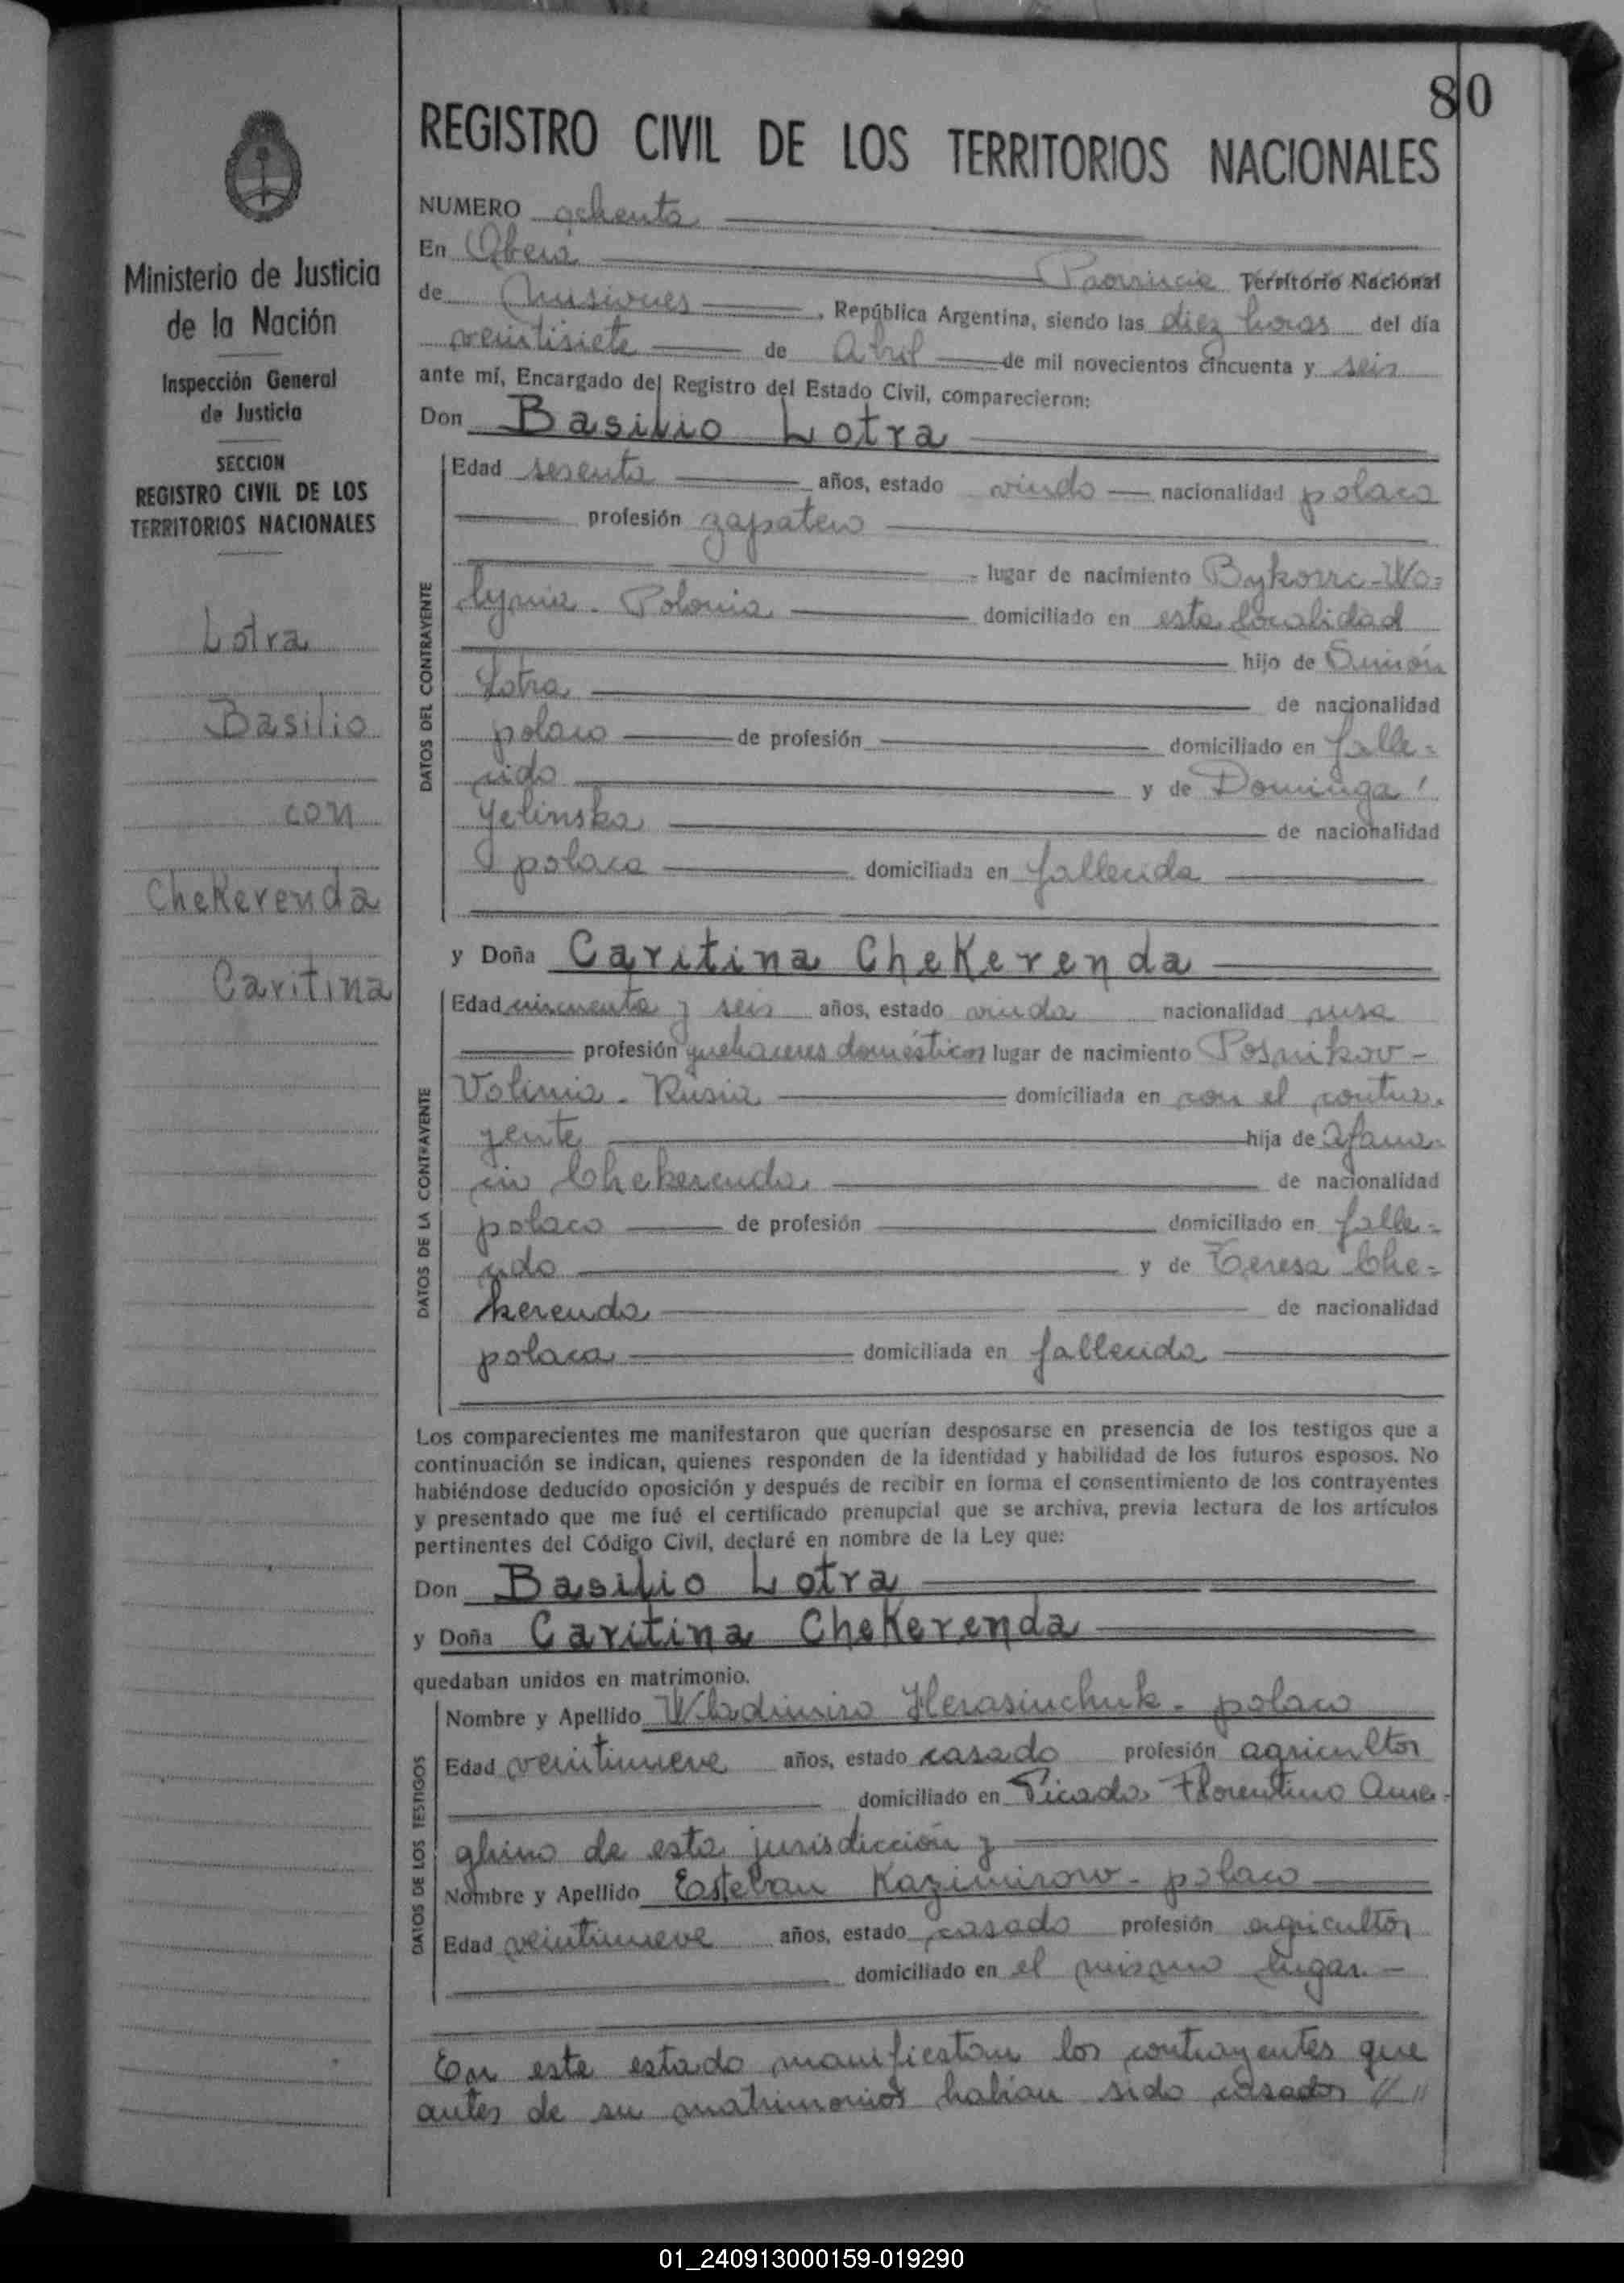 80
REGISTRO CIVIL DE LOS TERRITORIOS NACIONALES
Ministerio de Justicia
de la Nación
Inspección General
de Justicia
SECCION
REGISTRO CIVIL DE LOS
TERRITORIOS NACIONALES
Lotra
Basilio
con
Chekerenda
Caritina
NUMERO ochenta
En Oberá Provincia Territorio Nacional
de Misiones, República Argentina, siendo las diez horas del día
veintisiete de Abril de mil novecientos cincuenta y seis
ante mí, Encargado del Registro del Estado Civil, comparecieron:
Don Basilio Lotra
DATOS DEL CONTRAYENTE
Edad sesenta años, estado viudo nacionalidad polaca
profesión zapatero
lugar de nacimiento Wo=
lynia - Polonia domiciliado en esta localidad
hijo de Simón
Lotra de nacionalidad
polaco de profesión domiciliado en falle=
cido y de Dominga
Yelinska de nacionalidad
polaca domiciliada en fallecida
y Doña Caritina Chekerenda
DATOS DE LA CONTRAYENTE
Edad cincuenta y seis años, estado viuda nacionalidad rusa
profesión quehaceres domésticos lugar de nacimiento Posnikov -
Volinia - Rusia domiciliada en con el contra=
yente hija de Afana=
cio Chekerenda de nacionalidad
polaco de profesión domiciliado en falle=
cido y de Teresa Che=
kerenda de nacionalidad
polaca domiciliada en fallecida
Los comparecientes me manifestaron que querían desposarse en presencia de los testigos que a
continuación se indican, quienes responden de la identidad y habilidad de los futuros esposos. No
habiéndose deducido oposición y después de recibir en forma el consentimiento de los contrayentes
y presentado que me fué el certificado prenupcial que se archiva, previa lectura de los artículos
pertinentes del Código Civil, declaré en nombre de la Ley que:
Don Basilio Lotra
y Doña Caritina Chekerenda
quedaban unidos en matrimonio.
DATOS DE LOS TESTIGOS
Nombre y Apellido Wladimiro Herasinchuk - polaco
Edad veintinueve años, estado casado profesión agricultor
domiciliado en Picada Florentino Ame-
ghino de esta jurisdicción y
Nombre y Apellido Esteban Kazimirow - polaco
Edad veintinueve años, estado casado profesión agricultor
domiciliado en el mismo lugar. -
En este estado manifiestan los contrayentes que
antes de su matrimonios habian sido casados //"
01_240913000159-019290